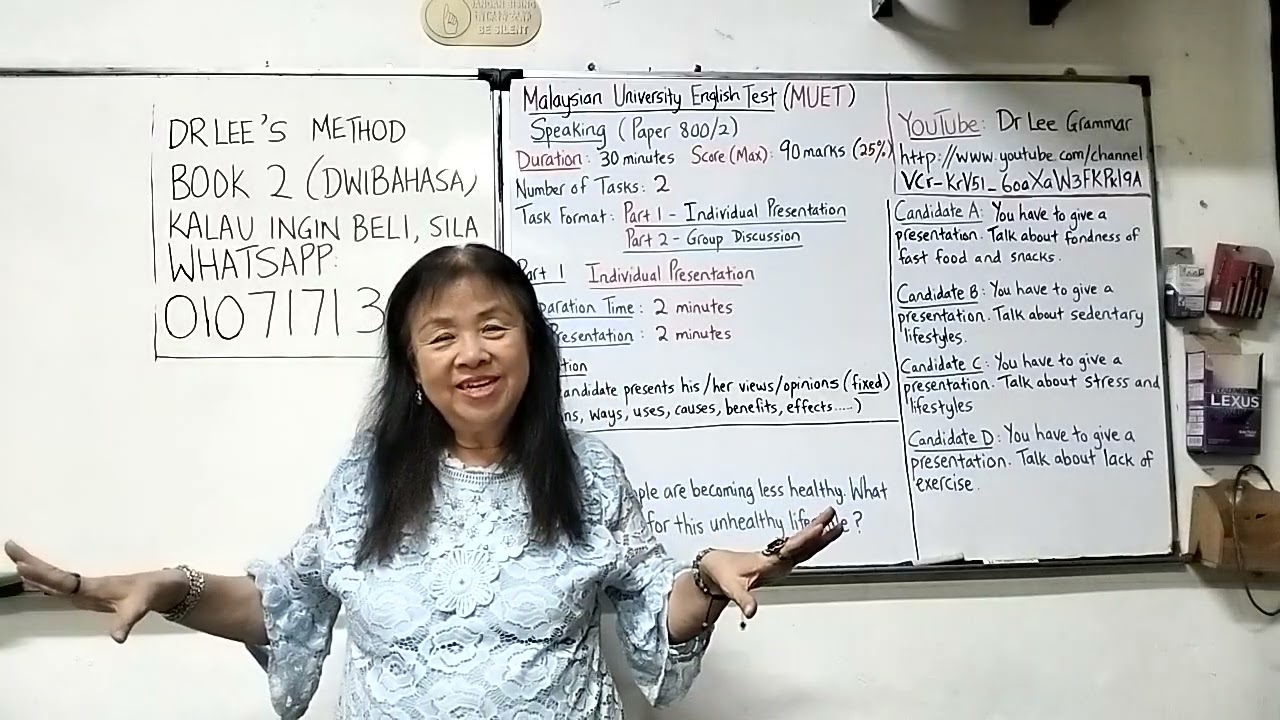 BE SILENT
DR LEE'S METHOD
BOOK 2 (DWIBAHASA)
KALAU INGIN BELI, SILA
WHATSAPP:
01071713
Malaysian University English Test (MUET)
Speaking (Paper 800/2)
Duration: 30 minutes Score (Max): 90 marks (25%)
Number of Tasks: 2
Task Format: Part 1 - Individual Presentation
Part 2 - Group Discussion
Part 1 Individual Presentation
paration Time: 2 minutes
Presentation: 2 minutes
tion
candidate presents his/her views/opinions (fixed)
ns, ways, uses, causes, benefits, effects.....)
ple are becoming less healthy. What
for this unhealthy ?
YouTube: Dr Lee Grammar
http://www.youtube.com/channel
Candidate A: You have to give a
presentation. Talk about fondness of
fast food and snacks.
Candidate B: You have to give a
presentation. Talk about sedentary
lifestyles.
Candidate C: You have to give a
presentation. Talk about stress and
lifestyles
Candidate D: You have to give a
presentation. Talk about lack of
exercise.
LEXUS